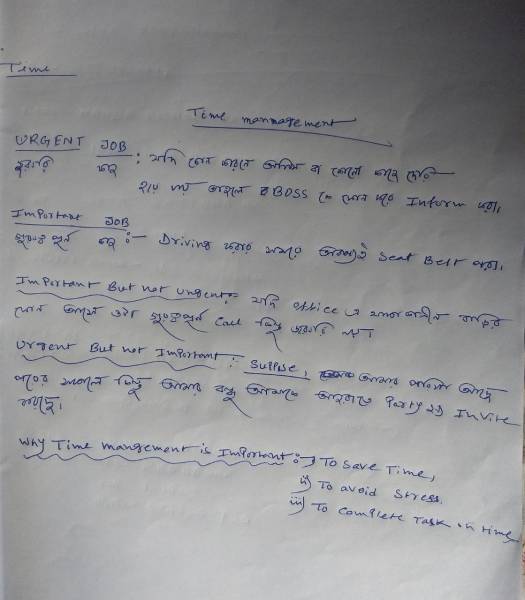 Time
Time manmagement
URGENT JOB : যদি কোন কারনে অফিস বা কোনো কাজে দেরি
জরুরি কাজ হয়ে যায় তাহলে BOSS কে ফোন করে Inform করা।
Important JOB
গুরুত্বপূর্ন কাজ :- Driving করার সময়ে অবশ্যই Seat Belt পরা।
Important But not urgent:- যদি office এ থাকাকালীন বাড়ির
ফোন আসে ওটা গুরুত্বপূর্ন Call কিন্তু জরুরি নয়।
Urgent But not Important : Suppose, আমার পরিক্ষা আছে
কিন্তু আমার বন্ধু আমাকে Party তে Invite
করেছে।
Why Time mangement is Important :- i) To Save Time,
ii) To avoid Stress.
iii) To Complete Task on time,